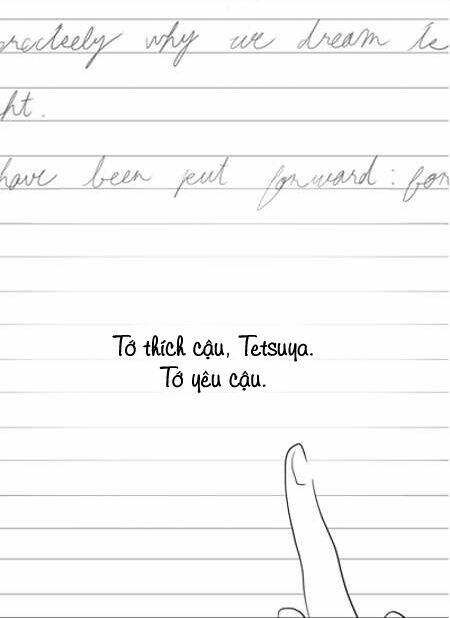 why we dream
ht.
have been put forward: for
Tớ thích cậu, Tetsuya.
Tớ yêu cậu.